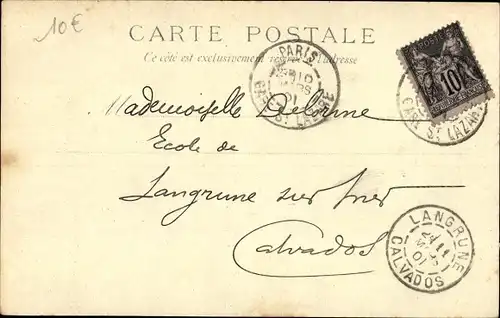 10€
CARTE POSTALE
Ce côté est exclusivement réservé à l'adresse
PARIS
MARS
01
GARE ST LAZARE
10
GARE ST LAZARE
Mademoiselle Delorme
Ecole de
Langrune sur Mer
Calvados
LANGRUNE
11
MARS
01
CALVADOS